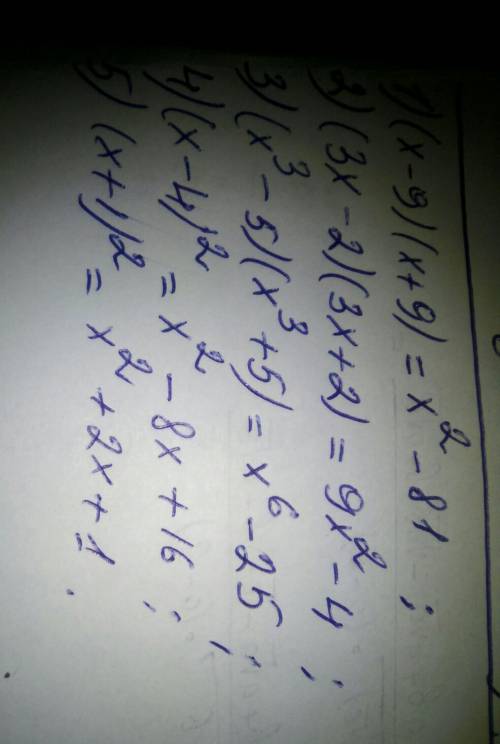 1) (x-9)(x+9) = x² - 81 ;
2) (3x-2)(3x+2) = 9x² - 4 ;
3) (x³-5)(x³+5) = x⁶ - 25 ;
4) (x-4)² = x² - 8x + 16 ;
5) (x+1)² = x² + 2x + 1 .